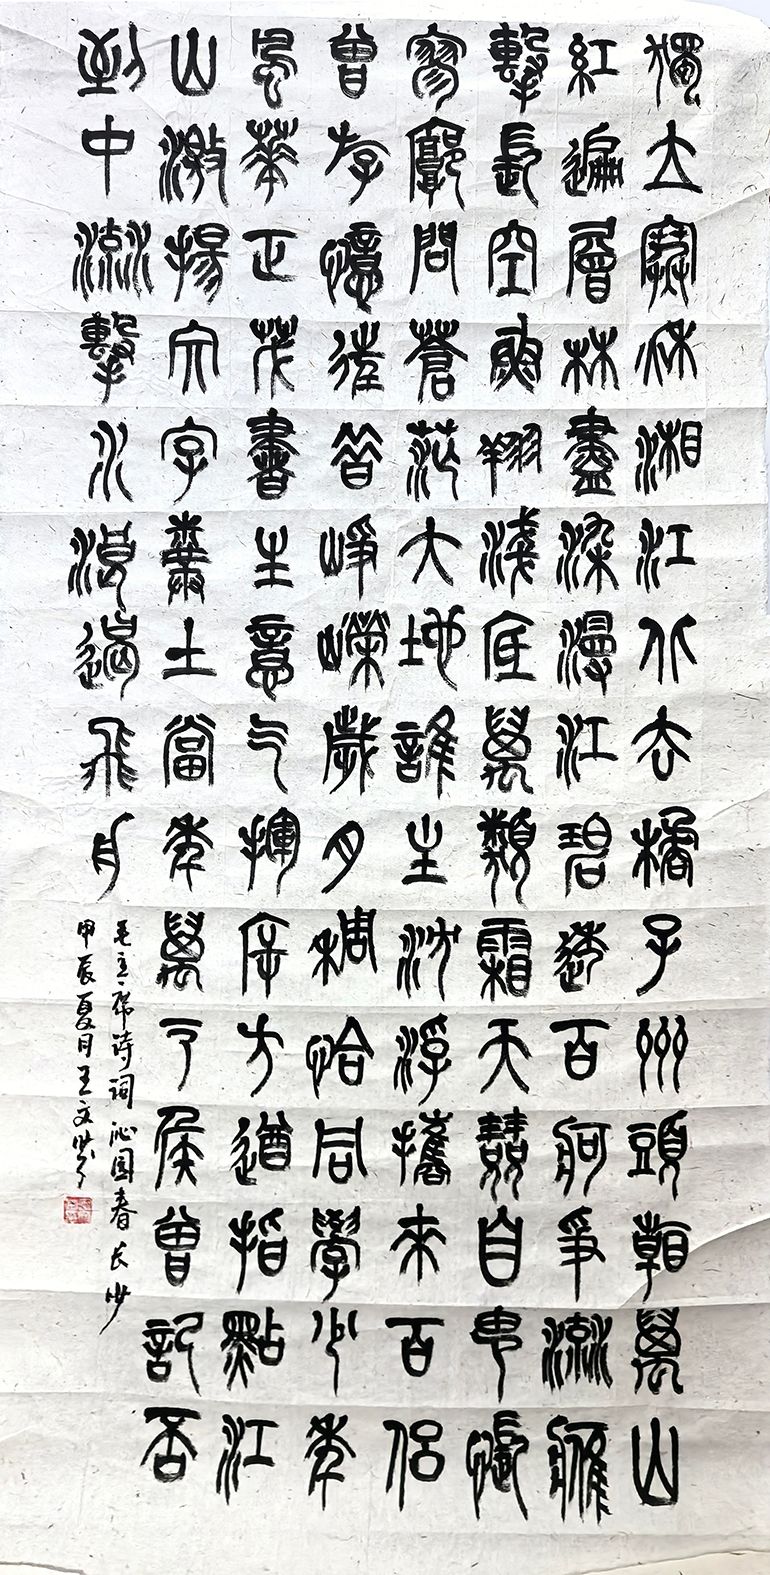 獨立寒秋湘江北去橘子州頭看萬山
紅遍層林盡染漫江碧透百舸爭流鷹
擊長空魚翔淺底萬類霜天競自由悵
寥廓問蒼茫大地誰主沉浮攜來百侶
曾游憶往昔崢嶸歲月稠恰同學少年
風華正茂書生意气揮斥方遒指點江
山激揚文字糞土當年萬户侯曾記否
到中流擊水浪遏飛舟
毛主席诗词沁园春长沙
甲辰夏月王文